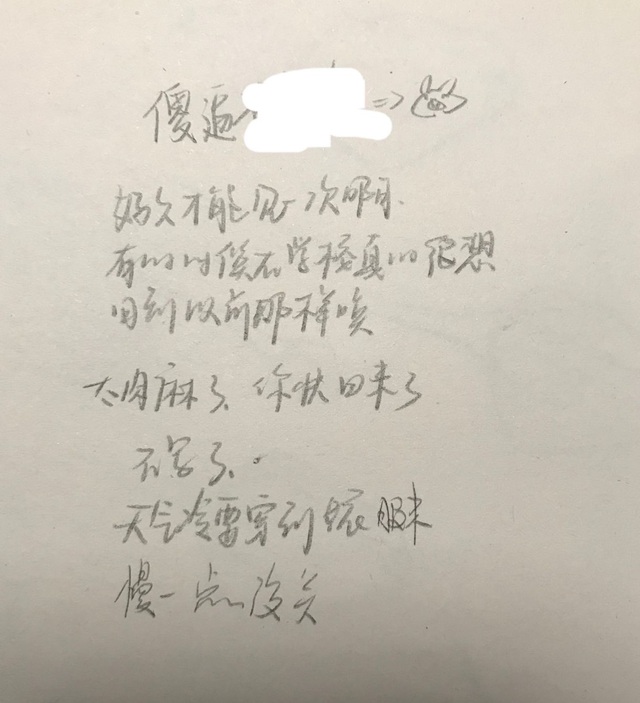 傻逼 =>
好久才能见一次啊
有的时候在学校真的很想
回到以前那样唉
太肉麻了、你快回来了
不写了、.
天气冷需穿到衣服来
慢一点没关